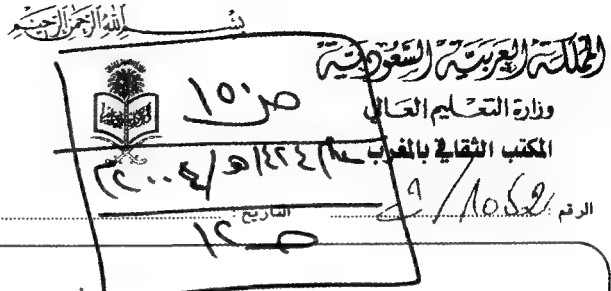 بسم الله الرحمن الرحيم
المملكة العربية السعودية
وزارة التعليم العالي
المكتب الثقافي بالمغرب
الرقم
التاريخ:
ص ١٥
١٤٢٤هـ/٢٠٠٤م
ص ١٢